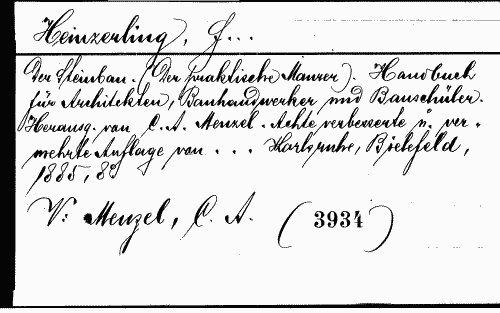 Heinzerling, F...
Der Steinbau. (Der praktische Maurer). Handbuch
für Architekten, Bauhandwerker und Bauschüler.
Herausg. von C. A. Menzel. Achte verbesserte u. ver-
mehrte Auflage von . . . Karlsruhe, Bielefeld,
1885, 89
V: Menzel, C. A. (3934)